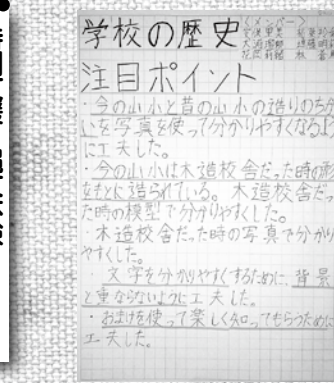 学校の歴史
〈メンバー〉
注目ポイント
・今の山小と昔の山小の造りのちが
いを写真を使って分かりやすくなるよ
に工夫した。
・今の山小は木造校舎だった時の形
をもとに造られている。木造校舎だっ
た時の模型で分かりやすくした。
・木造校舎だった時の写真で分かり
やすくした。
・文字を分かりやすくするために、背景
と重ならないように工夫した。
・おまけを使って楽しく知ってもらうために
工夫した。